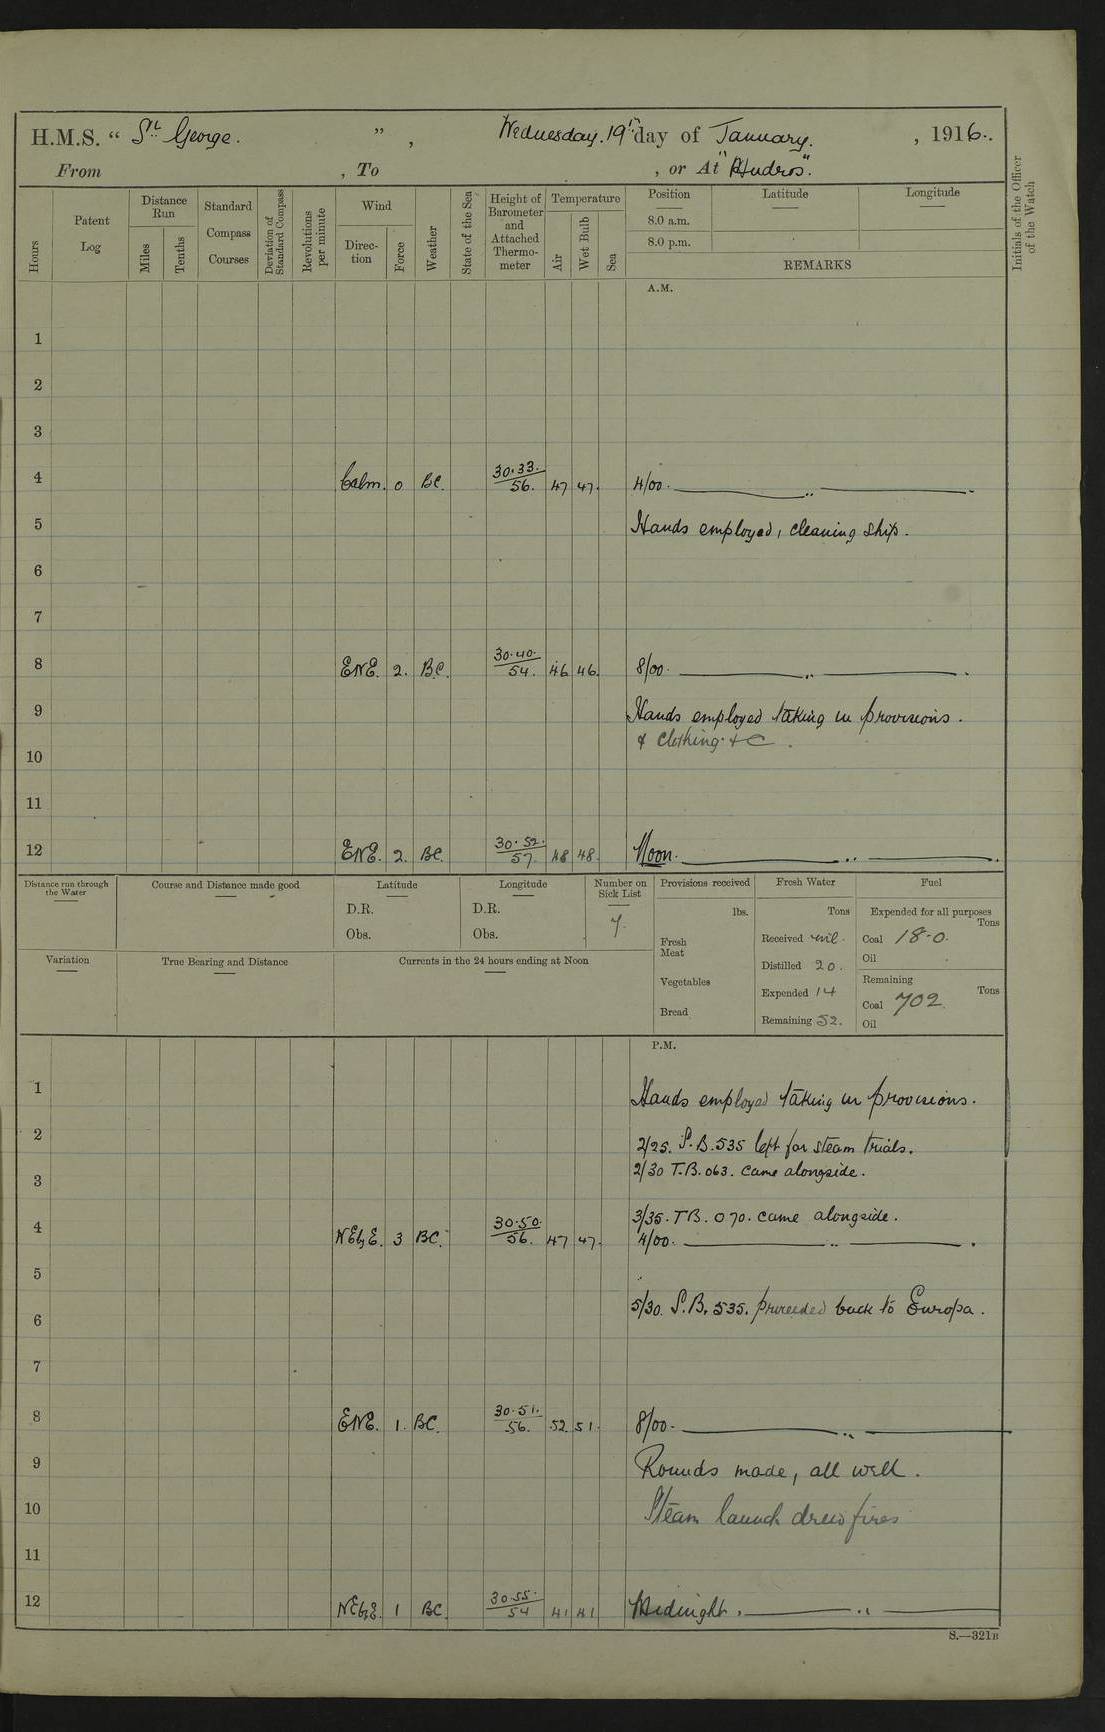 H.M.S. “ St. George. ”, Wednesday. 19th day of January. , 1916.
From , To , or At "Mudros".
Hours
Patent Log
Distance Run
Miles
Tenths
Standard Compass Courses
Deviation of Standard Compass
Revolutions per minute
Wind
Direction
Force
Weather
State of the Sea
Height of Barometer and Attached Thermometer
Temperature
Air
Wet Bulb
Sea
Position
Latitude
Longitude
8.0 a.m.
8.0 p.m.
REMARKS
Initials of the Officer of the Watch
A.M.
1
2
3
4 Calm. 0 BC. 30.33. 56. 47 47. 4/00. „
5 Hands employed, cleaning ship.
6
7
8 ENE. 2. BC. 30.40. 54. 46 46. 8/00. „
9 Hands employed taking in provisions.
& clothing. &c.
10
11
12 ENE. 2. BC. 30.52. 57. 48 48. Noon. „
Distance run through the Water
Course and Distance made good
Latitude
D.R.
Obs.
Longitude
D.R.
Obs.
Number on Sick List
7.
Provisions received
lbs.
Fresh Meat
Vegetables
Bread
Fresh Water
Tons
Received nil.
Distilled 20.
Expended 14
Remaining 52.
Fuel
Expended for all purposes
Tons
Coal 18.0.
Oil
Remaining
Tons
Coal 702
Oil
Variation
True Bearing and Distance
Currents in the 24 hours ending at Noon
P.M.
1 Hands employed taking in provisions.
2 2/25. P.B. 535 left for steam trials.
2/30 T.B. 063. came alongside.
3
3/35. TB. 070. came alongside.
4 NEbyE. 3 BC. 30.50. 56. 47 47. 4/00. „
5
5/30. P.B. 535. proceeded back to Europa.
6
7
8 ENE. 1. BC. 30.51. 56. 52. 51. 8/00. „
9 Rounds made, all well.
10 Steam launch drew fires
11
12 NEbyE. 1 BC. 30.55. 54 41 41 Midnight. „
S.—321B